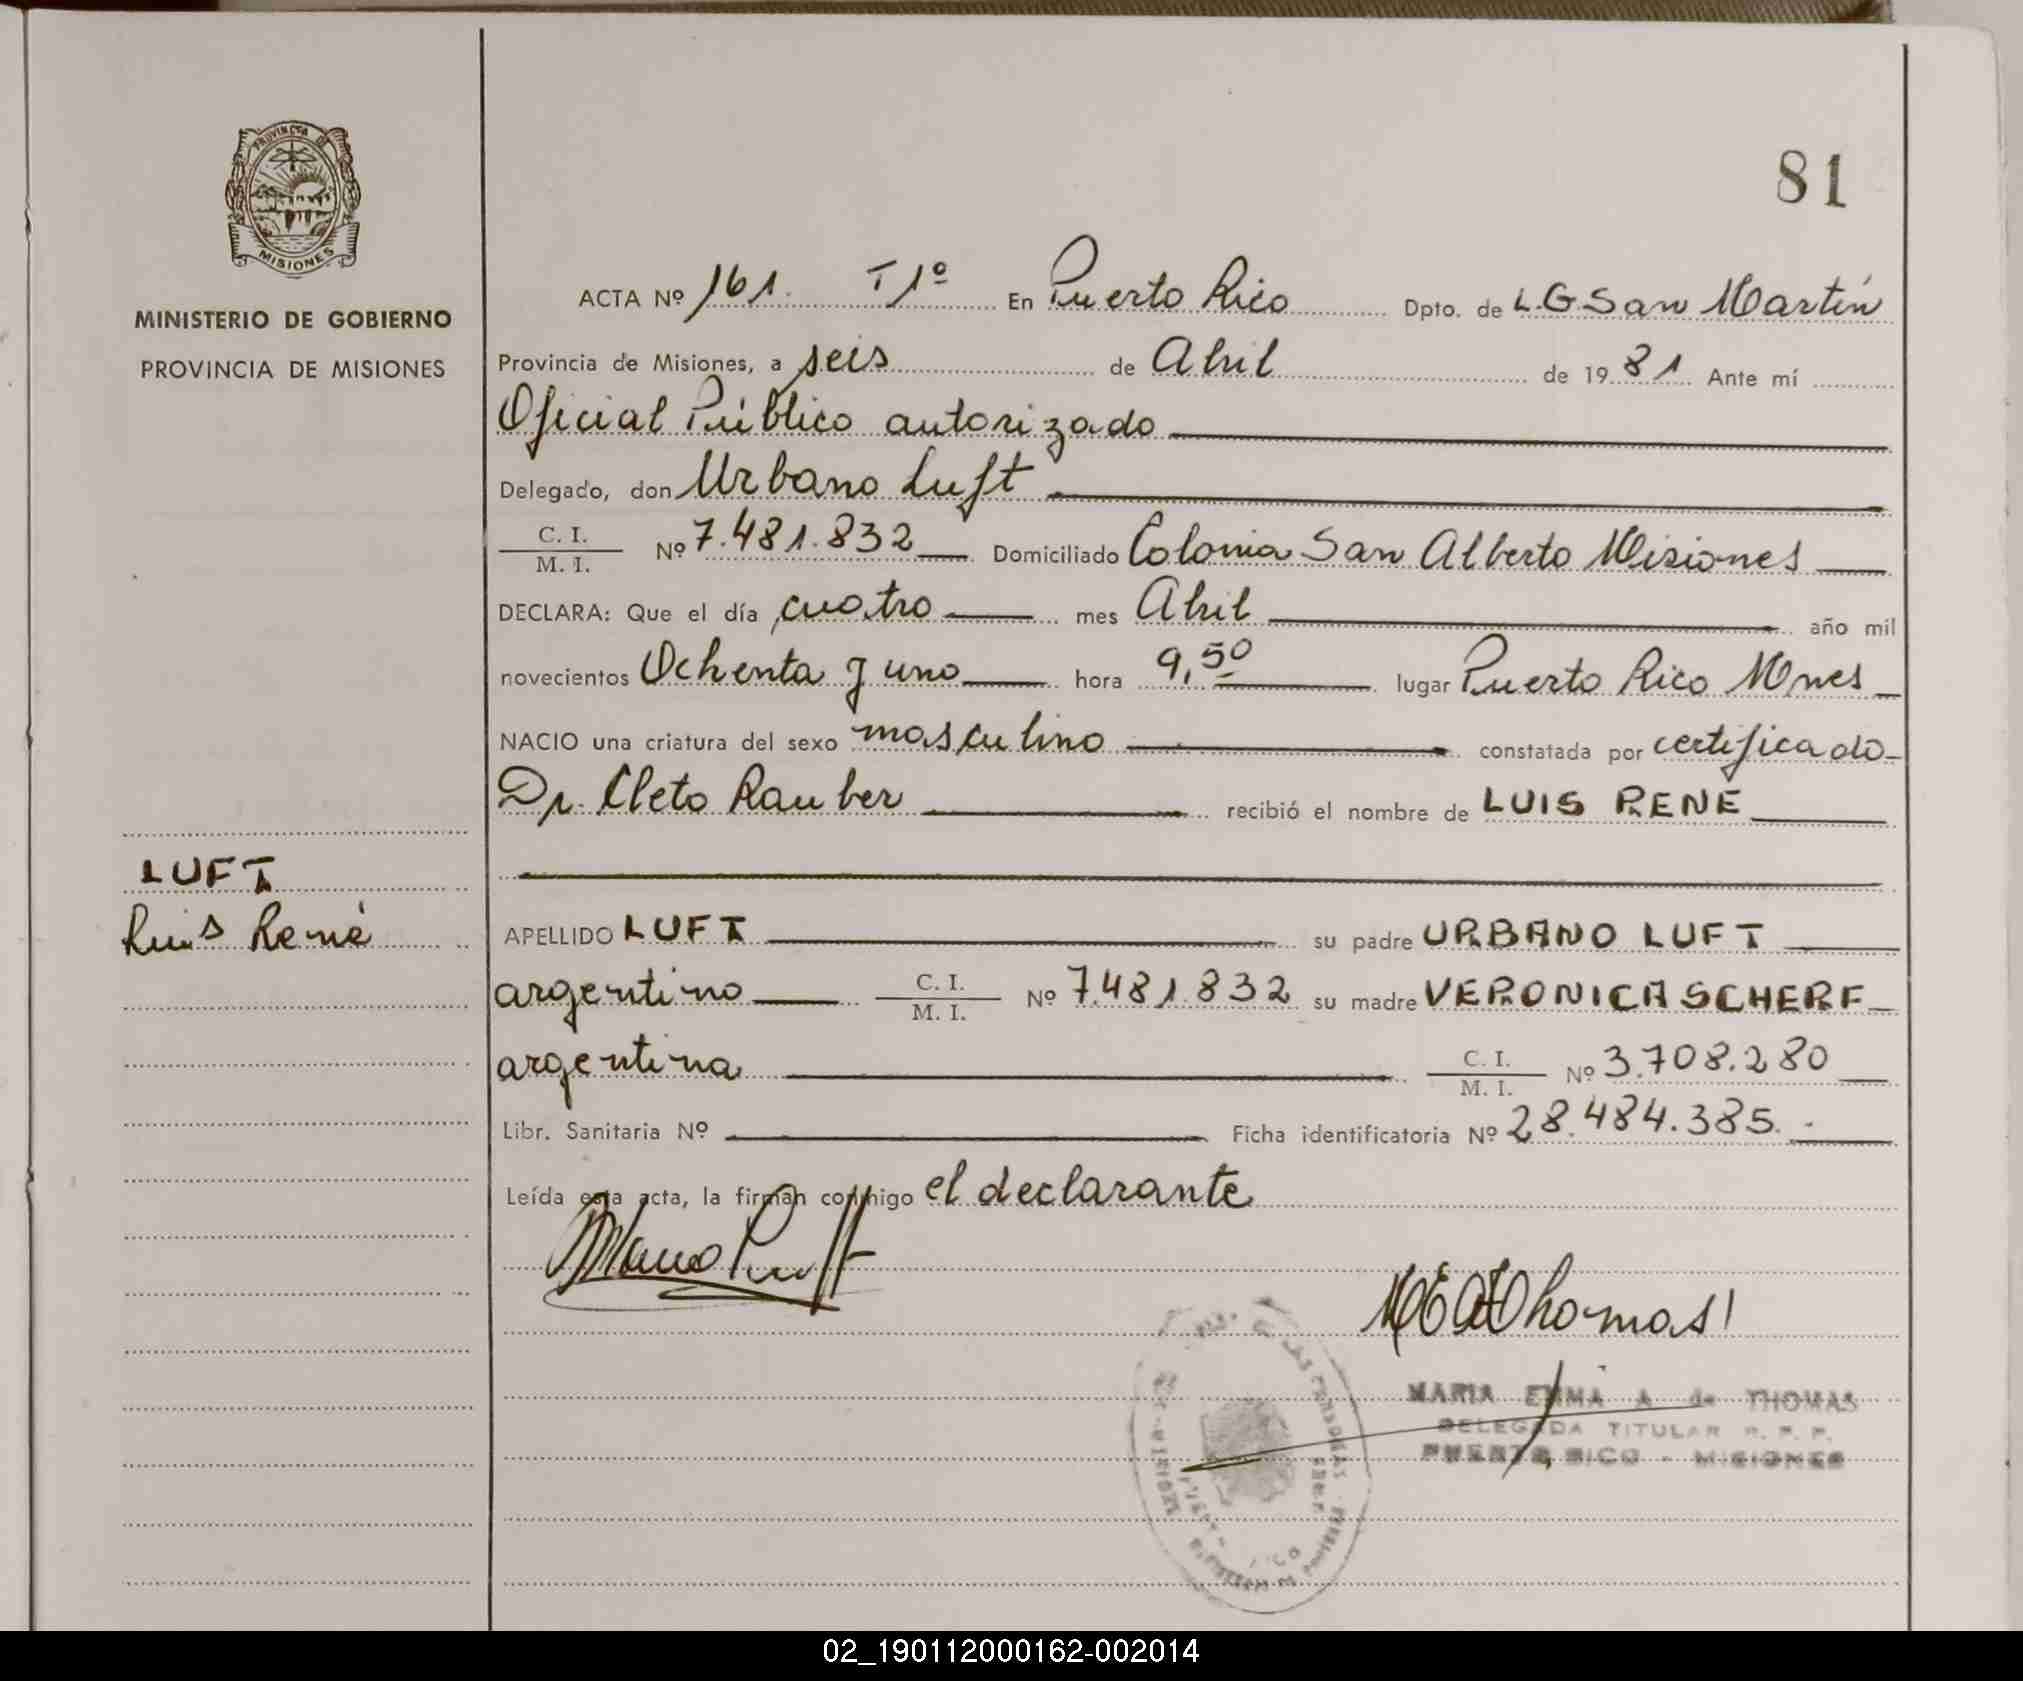 81
PROVINCIA DE
MISIONES
MINISTERIO DE GOBIERNO
PROVINCIA DE MISIONES
ACTA Nº 161. T1º En Puerto Rico Dpto. de L.G. San Martín
Provincia de Misiones, a seis de Abril de 1981 Ante mí
Oficial Público autorizado
Delegado, don Urbano Luft
C. I.
M. I. Nº 7.481.832 Domiciliado Colonia San Alberto Misiones
DECLARA: Que el día cuatro mes Abril año mil
novecientos Ochenta y uno hora 9,50 lugar Puerto Rico Mnes
NACIO una criatura del sexo masculino constatada por certificado
Dr. Cleto Rauber recibió el nombre de LUIS RENE
LUFT
Luis René
APELLIDO LUFT su padre URBANO LUFT
argentino C. I.
M. I. Nº 7.481.832 su madre VERONICA SCHERF
argentina C. I.
M. I. Nº 3.708.280
Libr. Sanitaria Nº Ficha identificatoria Nº 28.484.385.
Leída esta acta, la firman conmigo el declarante
MARIA EMMA A de THOMAS
DELEGADA TITULAR R. P. P.
PUERTO RICO - MISIONES
02_190112000162-002014